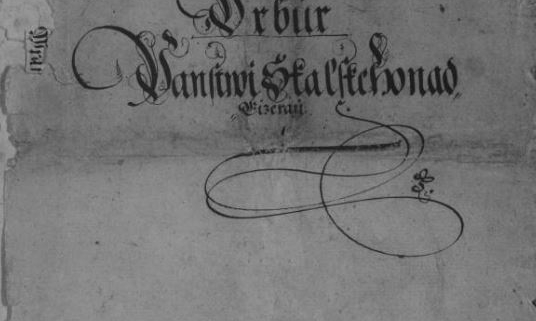 Vrbur
Panstwi Skalskeho nad
Gizerau